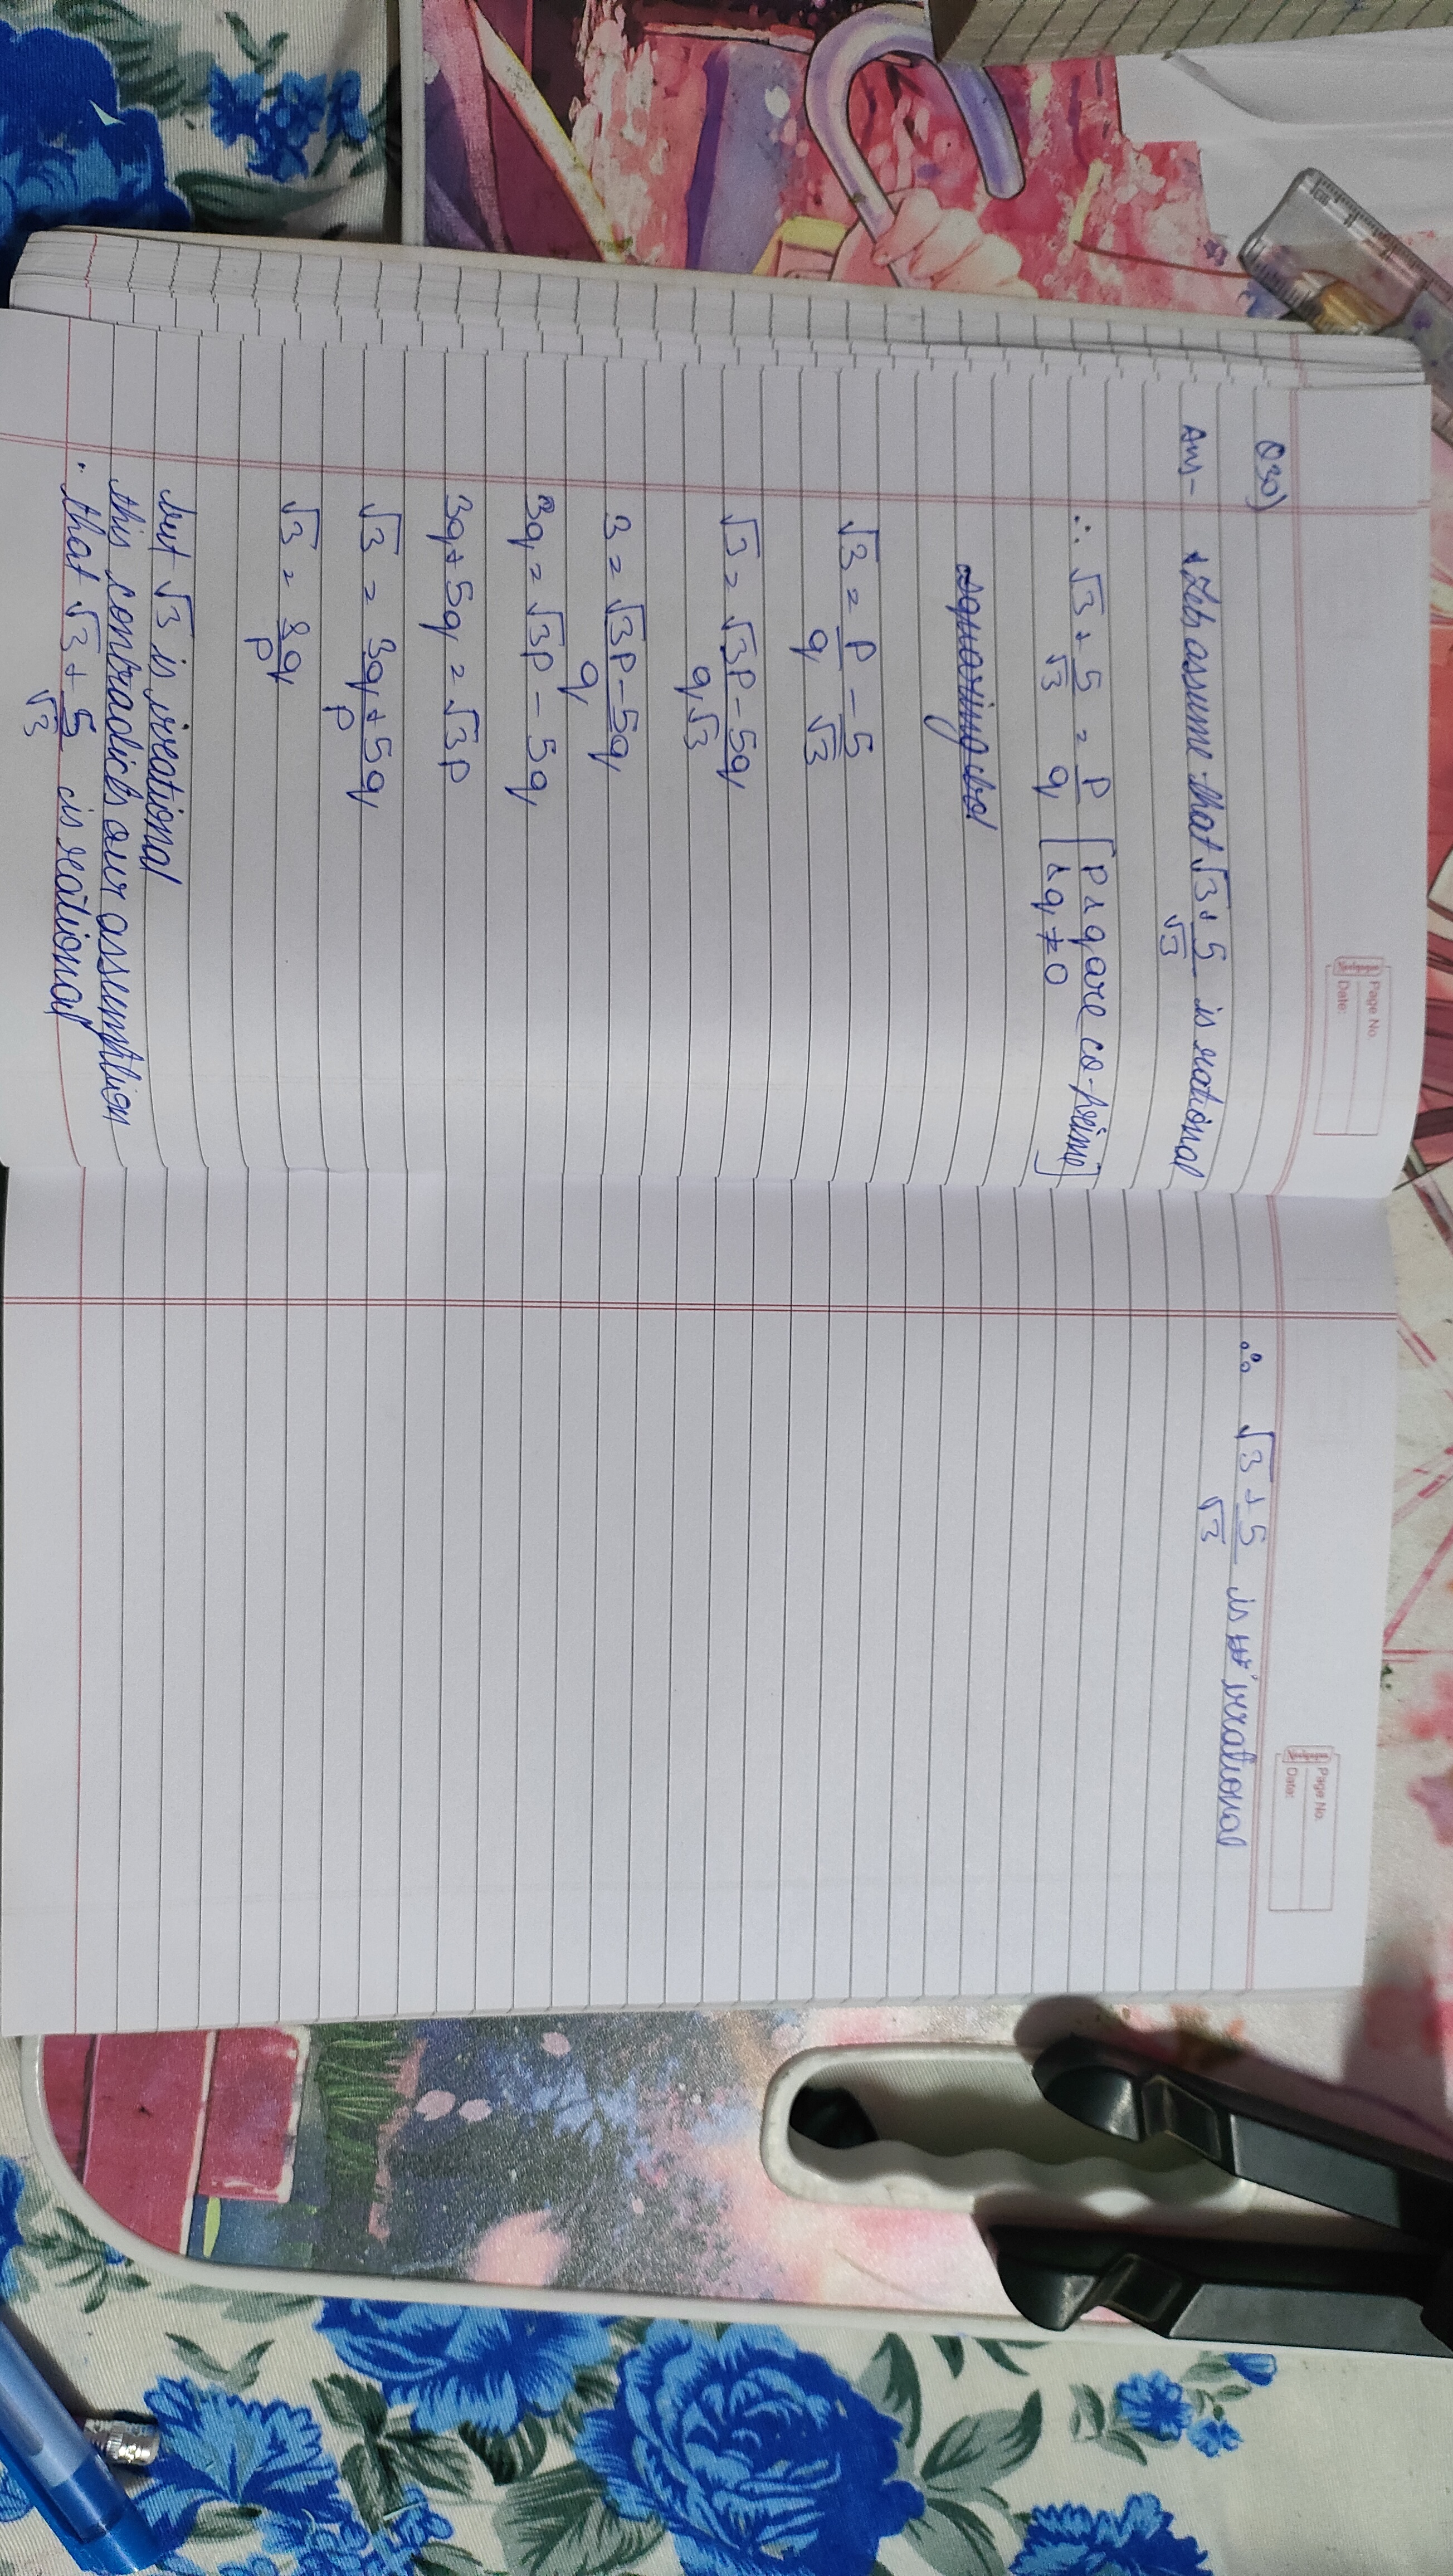 Page No.
Date:
Q30)
Ans- Lets assume that √3 + 5/√3 is rational
∴ √3 + 5/√3 = p/q [p & q are co-prime]
[& q ≠ 0
√3 = p/q - 5/√3
√3 = √3p - 5q / q√3
3 = √3p - 5q / q
3q = √3p - 5q
3q + 5q = √3p
√3 = 3q + 5q / p
√3 = 8q / p
but √3 is irrational
this contradicts our assumption
∴ that √3 + 5/√3 is rational
Page No.
Date:
∴ √3 + 5/√3 is irrational